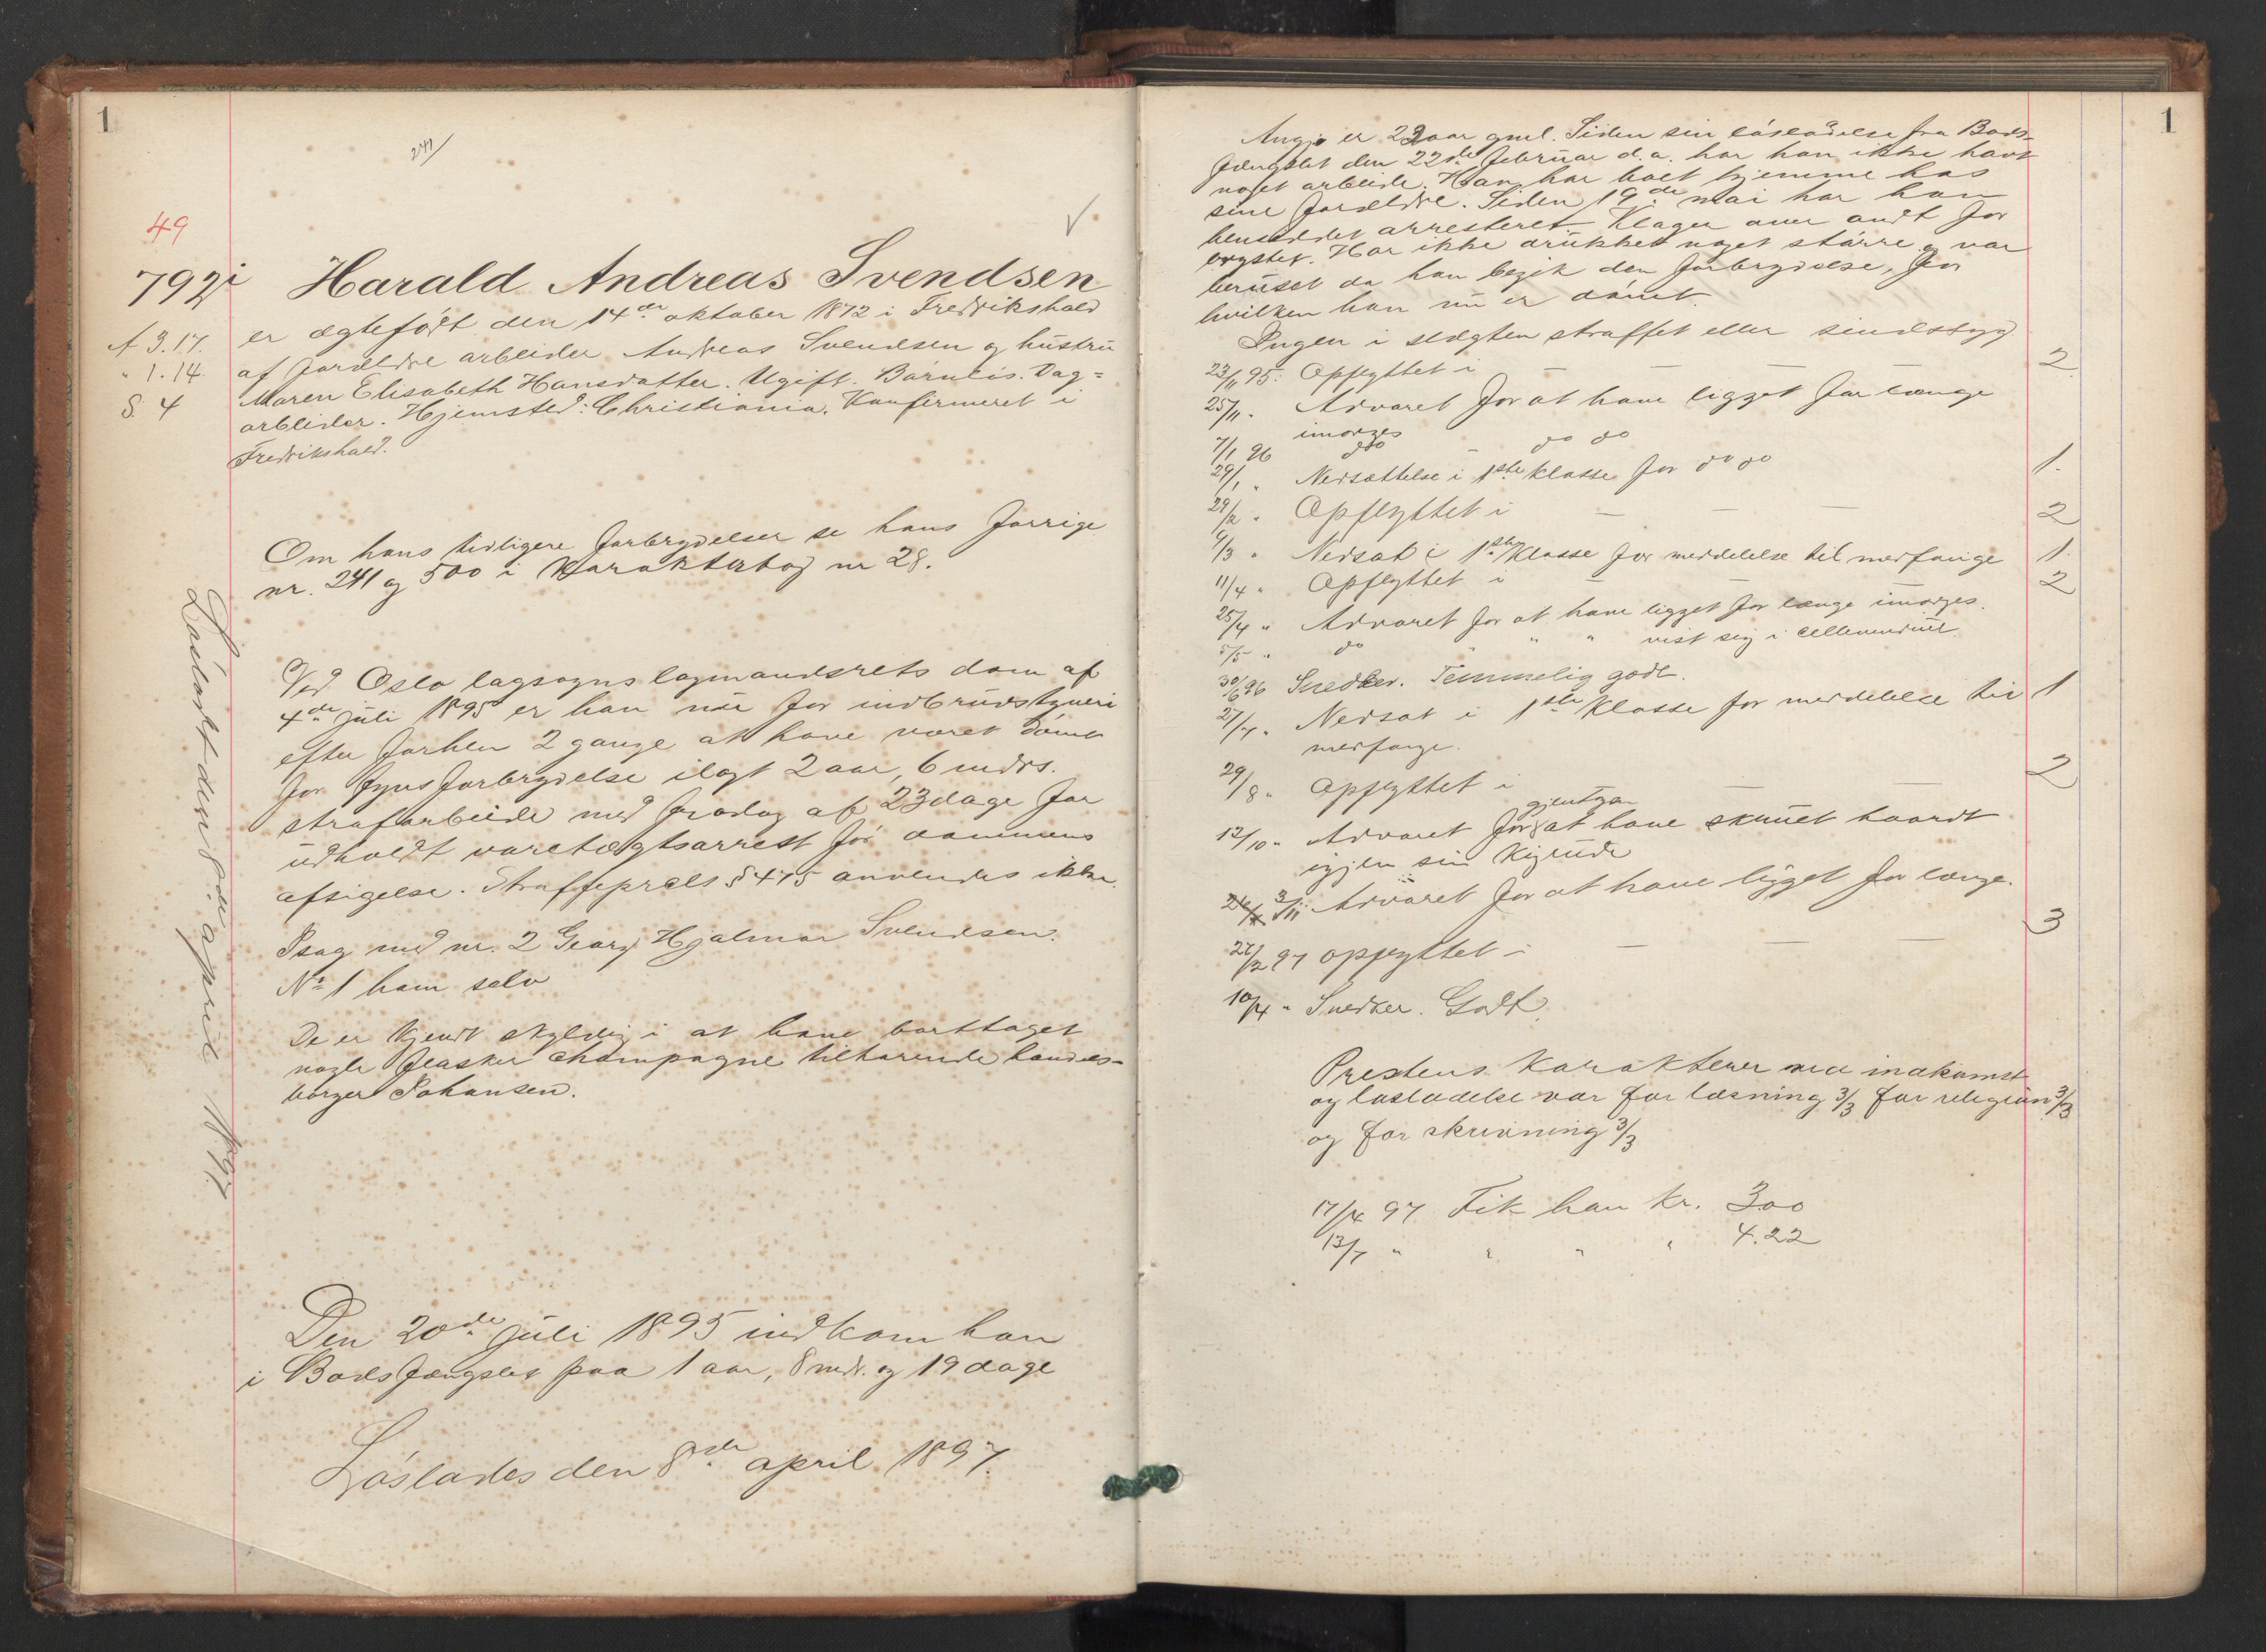 1
241
49
792i Harald Andreas Svendsen
er ægtefødt den 14de oktober 1872 i Fredrikshald
A 3.17.
af forældre arbeider Andreas Svendsen og hustru
" 1.14.
Maren Elisabeth Hansdatter. Ugift. Barnløs. Dag=
S. 4
arbeider. Hjemsted: Christiania. Konfirmeret i
Fredrikshald.
Om hans tidligere forbrydelser se hans forrige
nr. 241 og 500 i Karakterbog nr 28.
Ved Oslo lagsogns lagmandsrets dom af
4de juli 1895 er han nu for indbrudstyveri
efter forhen 2 gange at have været dømt
for tyvsforbrydelse ilagt 2 aar, 6 mdrs.
strafarbeide med fradag af 23 dage for
udholdt varetægtsarrest før dommens
afsigelse. Straffeprcls § 475 anvendes ikke.
I sag med nr. 2 Georg Hjalmar Svendsen.
No 1 ham selv
De er kjendt skyldig i at have borttaget
nogle flasker champagne tilhørende handels-
borger Johansen.
Den 20de juli 1895 indkom han
i Bodsfængslet paa 1 aar, 8 mdr. og 19 dage
Løslades den 8de april 1897.
Løsladt den 8de april 1897.
1
Angiv er 22 aar gml. Siden sin løsladelse fra Bods-
fængslet den 22de februar d.a. har han ikke havt
noget arbeide. Han har boet hjemme hos
sine forældre. Siden 19de mai har han
hensiddet arresteret. Klager over ondt for
brystet. Har ikke drukket noget større og var
beruset da han begik den forbrydelse, for
hvilken han nu er dømt.
Ingen i slægten straffet eller sindssyg.
23/11 95: Opflyttet i — — — 2
25/11 " Advaret for at have ligget for længe
imorges
7/1 96 do do do
29/1 " Nedsættelse i 1ste klasse for do do 1.
29/2 " Opflyttet i — — — 2
9/3 " Nedsat i 1ste klasse for meddelelse til medfange 1.
11/4 " Opflyttet i — — 2
25/4 " Advaret for at have ligget for længe imorges.
5/5 " do " " vist sig i cellevinduet.
30/6 96 Snedker. Temmelig godt.
27/7 " Nedsat i 1ste Klasse for meddelelse til 1
medfange.
29/8 " Opflyttet i — — 2
gjentgan
12/10 " Advaret for at have skruet haardt
igjen sin Kigrude
3/11 Advaret for at have ligget for længe.
27/2 97 opflyttet i — — — 3
10/4 " Snedker. Godt.
Prestens Karakterer ved indkomst
og løsladelse var for læsning 3/3 for religion 3/3
og for skrivning 3/3
17/4 97 Fik han kr. 3.00
13/7 " " " " 4.22